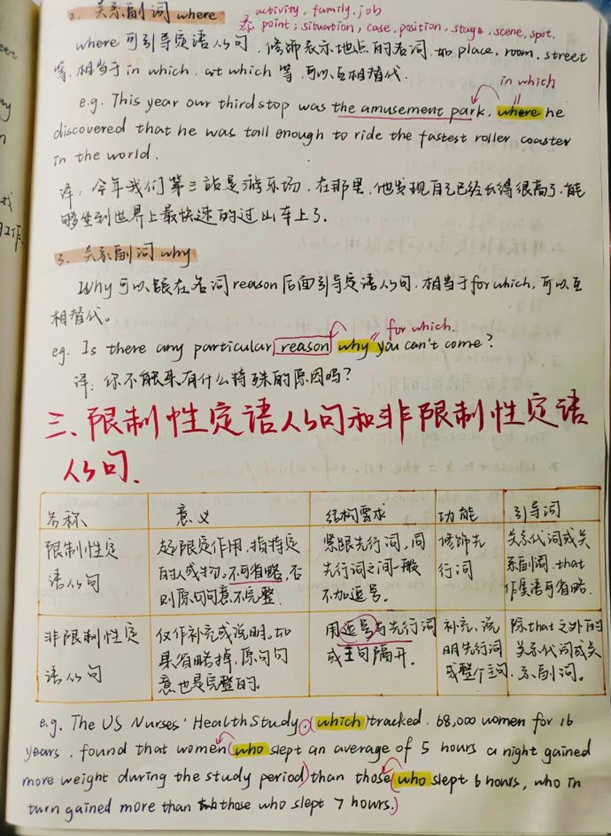 2. 关系副词 where
activity, family, job
point, situation, case, position, stage, scene, spot.
where 可引导定语从句, 修饰表示地点的名词, 如 place, room, street
等, 相当于 in which, at which 等, 可以互相替代.
in which
e.g. This year our third stop was the amusement park, where he
discovered that he was tall enough to ride the fastest roller coaster
in the world.
译: 今年我们第三站是游乐场, 在那里, 他发现自己已经长得很高了, 能
够坐到世界上最快速的过山车上了.
3. 关系副词 why
Why 可以跟在名词 reason 后面引导定语从句, 相当于 for which, 可以互
相替代。
for which.
eg. Is there any particular reason why you can't come?
译: 你不能来有什么特殊的原因吗?
三、限制性定语从句和非限制性定语
从句.
名称 意义 结构需求 功能 引导词
限制性定语从句 起限定作用, 指特定的人或物, 不可省略, 否则原句句意不完整. 紧跟先行词, 同先行词之间一般不加逗号. 修饰先行词 关系代词或关系副词, that作宾语可省略.
非限制性定语从句 仅作补充或说明, 如果省略掉, 原句句意也是完整的. 用逗号与先行词或主句隔开. 补充、说明先行词或整个主句. 除that之外的关系代词或关系副词.
e.g. The US Nurses' Health Study, which tracked 68,000 women for 16
years, found that women who slept an average of 5 hours a night gained
more weight during the study period than those who slept 6 hours, who in
turn gained more than those who slept 7 hours.